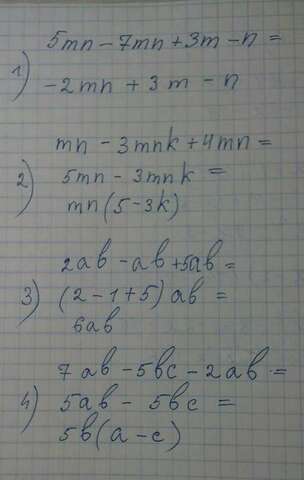 5mn - 7mn + 3m - n =
1) -2mn + 3m - n
mn - 3mnk + 4mn =
2) 5mn - 3mnk =
mn(5-3k)
2ab - ab + 5ab =
3) (2 - 1 + 5) ab =
6ab
7ab - 5bc - 2ab =
4) 5ab - 5bc =
5b(a - c)